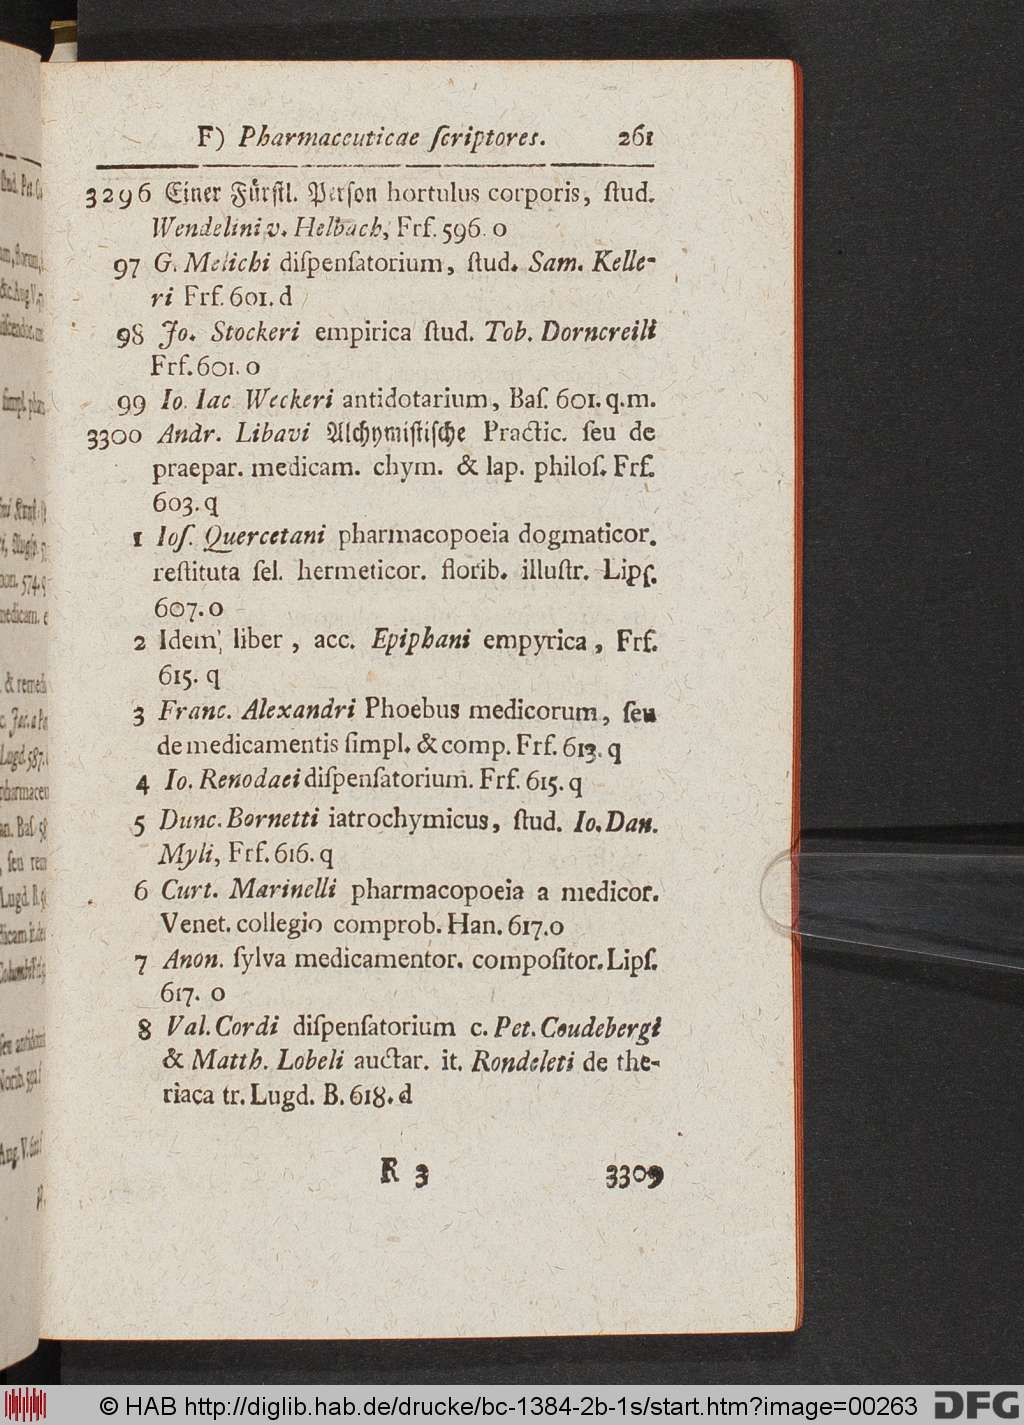 F) Pharmaceuticae ſcriptores. 261
3296 Einer Fürſtl. Perſon hortulus corporis, ſtud.
Wendelini v. Helbach, Frf. 596. o
97 G. Melichi diſpenſatorium, ſtud. Sam. Kelle-
ri Frf. 601. d
98 Jo. Stockeri empirica ſtud. Tob. Dorncreili
Frf. 601. o
99 Io. Iac. Weckeri antidotarium, Baſ. 601. q.m.
3300 Andr. Libavi Alchymiſtiſche Practic. ſeu de
praepar. medicam. chym. & lap. philoſ. Frf.
603. q
1 Ioſ. Quercetani pharmacopoeia dogmaticor.
reſtituta ſel. hermeticor. florib. illuſtr. Lipſ.
607. o
2 Idem liber, acc. Epiphani empyrica, Frf.
615. q
3 Franc. Alexandri Phoebus medicorum, ſeu
de medicamentis ſimpl. & comp. Frf. 613. q
4 Io. Renodaei diſpenſatorium. Frf. 615. q
5 Dunc. Bornetti iatrochymicus, ſtud. Io. Dan.
Myli, Frf. 616. q
6 Curt. Marinelli pharmacopoeia a medicor.
Venet. collegio comprob. Han. 617. o
7 Anon. ſylva medicamentor. compoſitor. Lipſ.
617. o
8 Val. Cordi diſpenſatorium c. Pet. Coudebergi
& Matth. Lobeli auctar. it. Rondeleti de the-
riaca tr. Lugd. B. 618. d
R 3 3309
© HAB http://diglib.hab.de/drucke/bc-1384-2b-1s/start.htm?image=00263 DFG